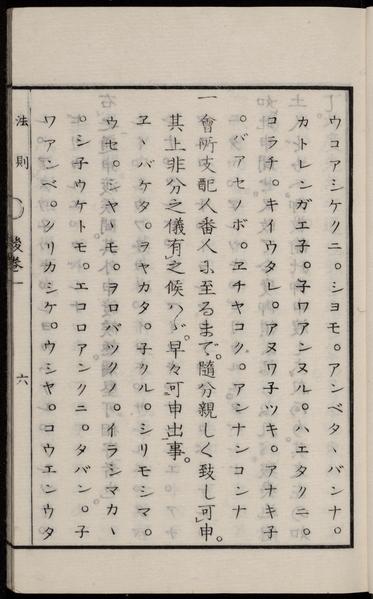 ウコアシケクニ。シヨモ。アンベタヽバンナ。
カトレンガエ子。子ワアンヌル。ハエタクニ。
コラチ。キイウタレ。アヌワ子ツキ。アナキ子
。バアセノボ。ヱチヤコク。アンナンコンナ
一會所支配人番人ニ至るまで。隨分親しく致し可申。
其上非分之儀有之候ハヾ。早々可申出事。
ヱヽバケタ。ヲヤカタ。子クル。シリモシマ。
ウセ。シヤヽモ。ヲロバツクノ。イラシマカヽ
。シ子ウケトモ。エコロアンクニ。タバン。子
ワアンベ。シリカシケ。ウシヤ。コウエンウタ
法則
後巻一
六